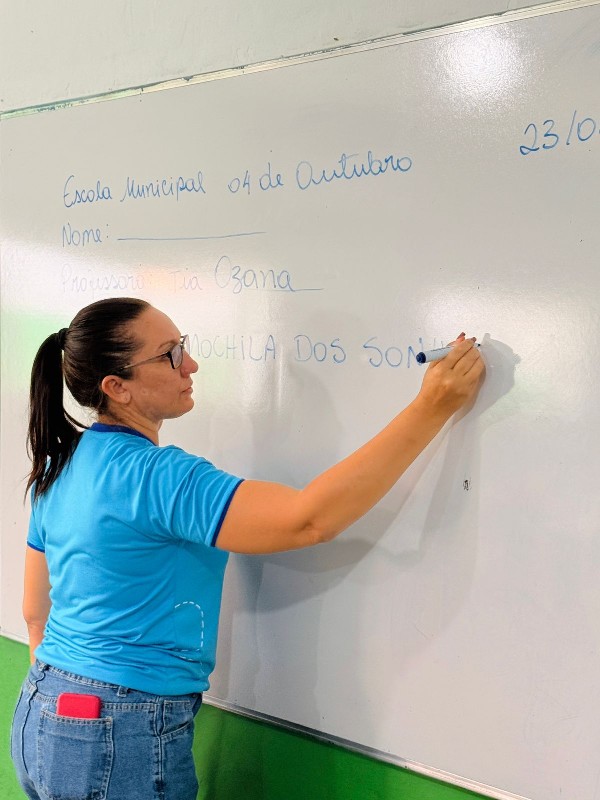 23/0
Escola Municipal 04 de Outubro
Nome: ____________
Professora: Tia Ozana
MOCHILA DOS SONH